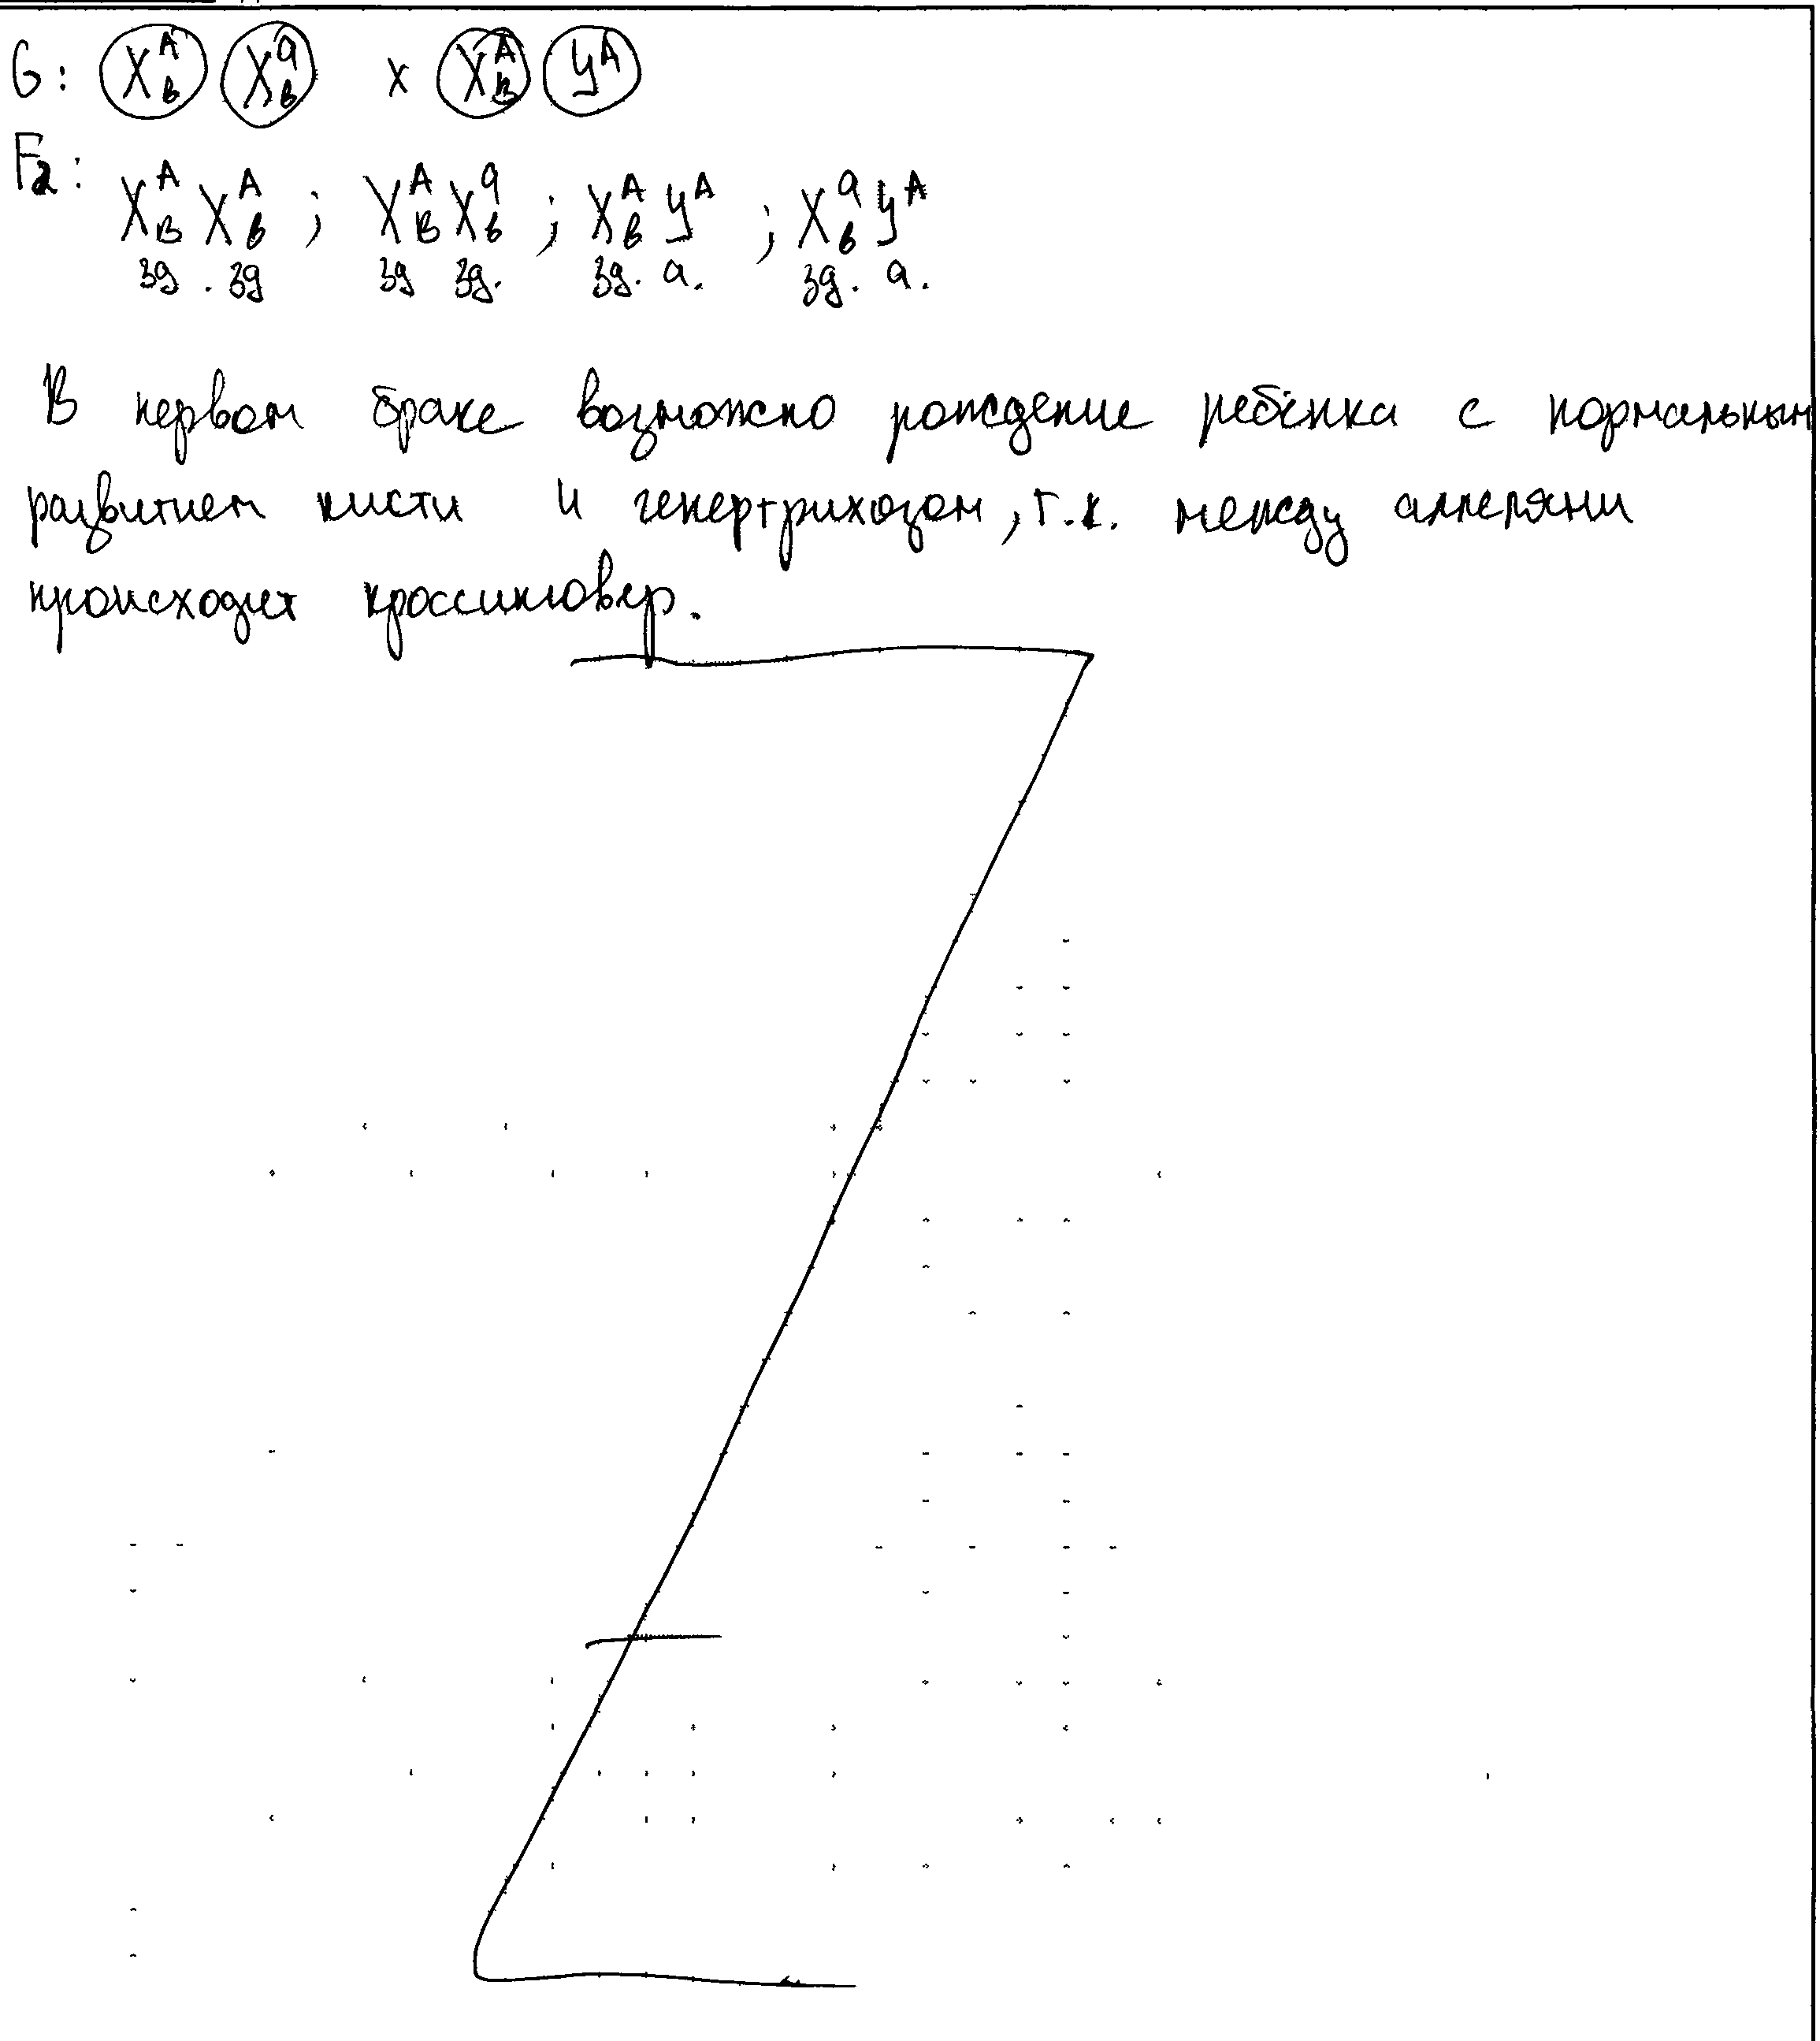 G: X^A_в X^a_в x X^A_B Y^A
F2: X^A_B X^A_в ; X^A_B X^a_в ; X^A_в Y^A ; X^a_в Y^A
зд . зд зд зд. зд. а. зд. а.
В первом браке возможно рождение ребёнка с нормальным
развитием кисти и гепертрихозом, т.к. между аллелями
происходит кроссинговер.